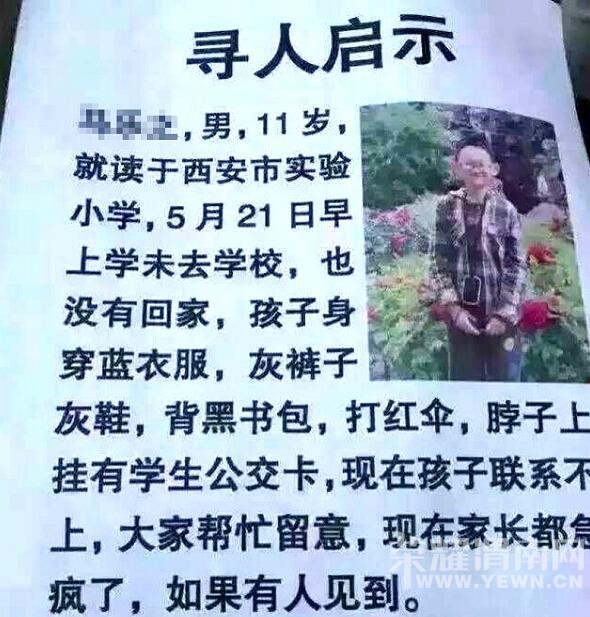 寻人启示
,男,11岁,
就读于西安市实验
小学,5月21日早
上学未去学校,也
没有回家,孩子身
穿蓝衣服,灰裤子
灰鞋,背黑书包,打红伞,脖子上
挂有学生公交卡,现在孩子联系不
上,大家帮忙留意,现在家长都急
疯了,如果有人见到。
荣耀渭南网
WWW.YEWN.CN